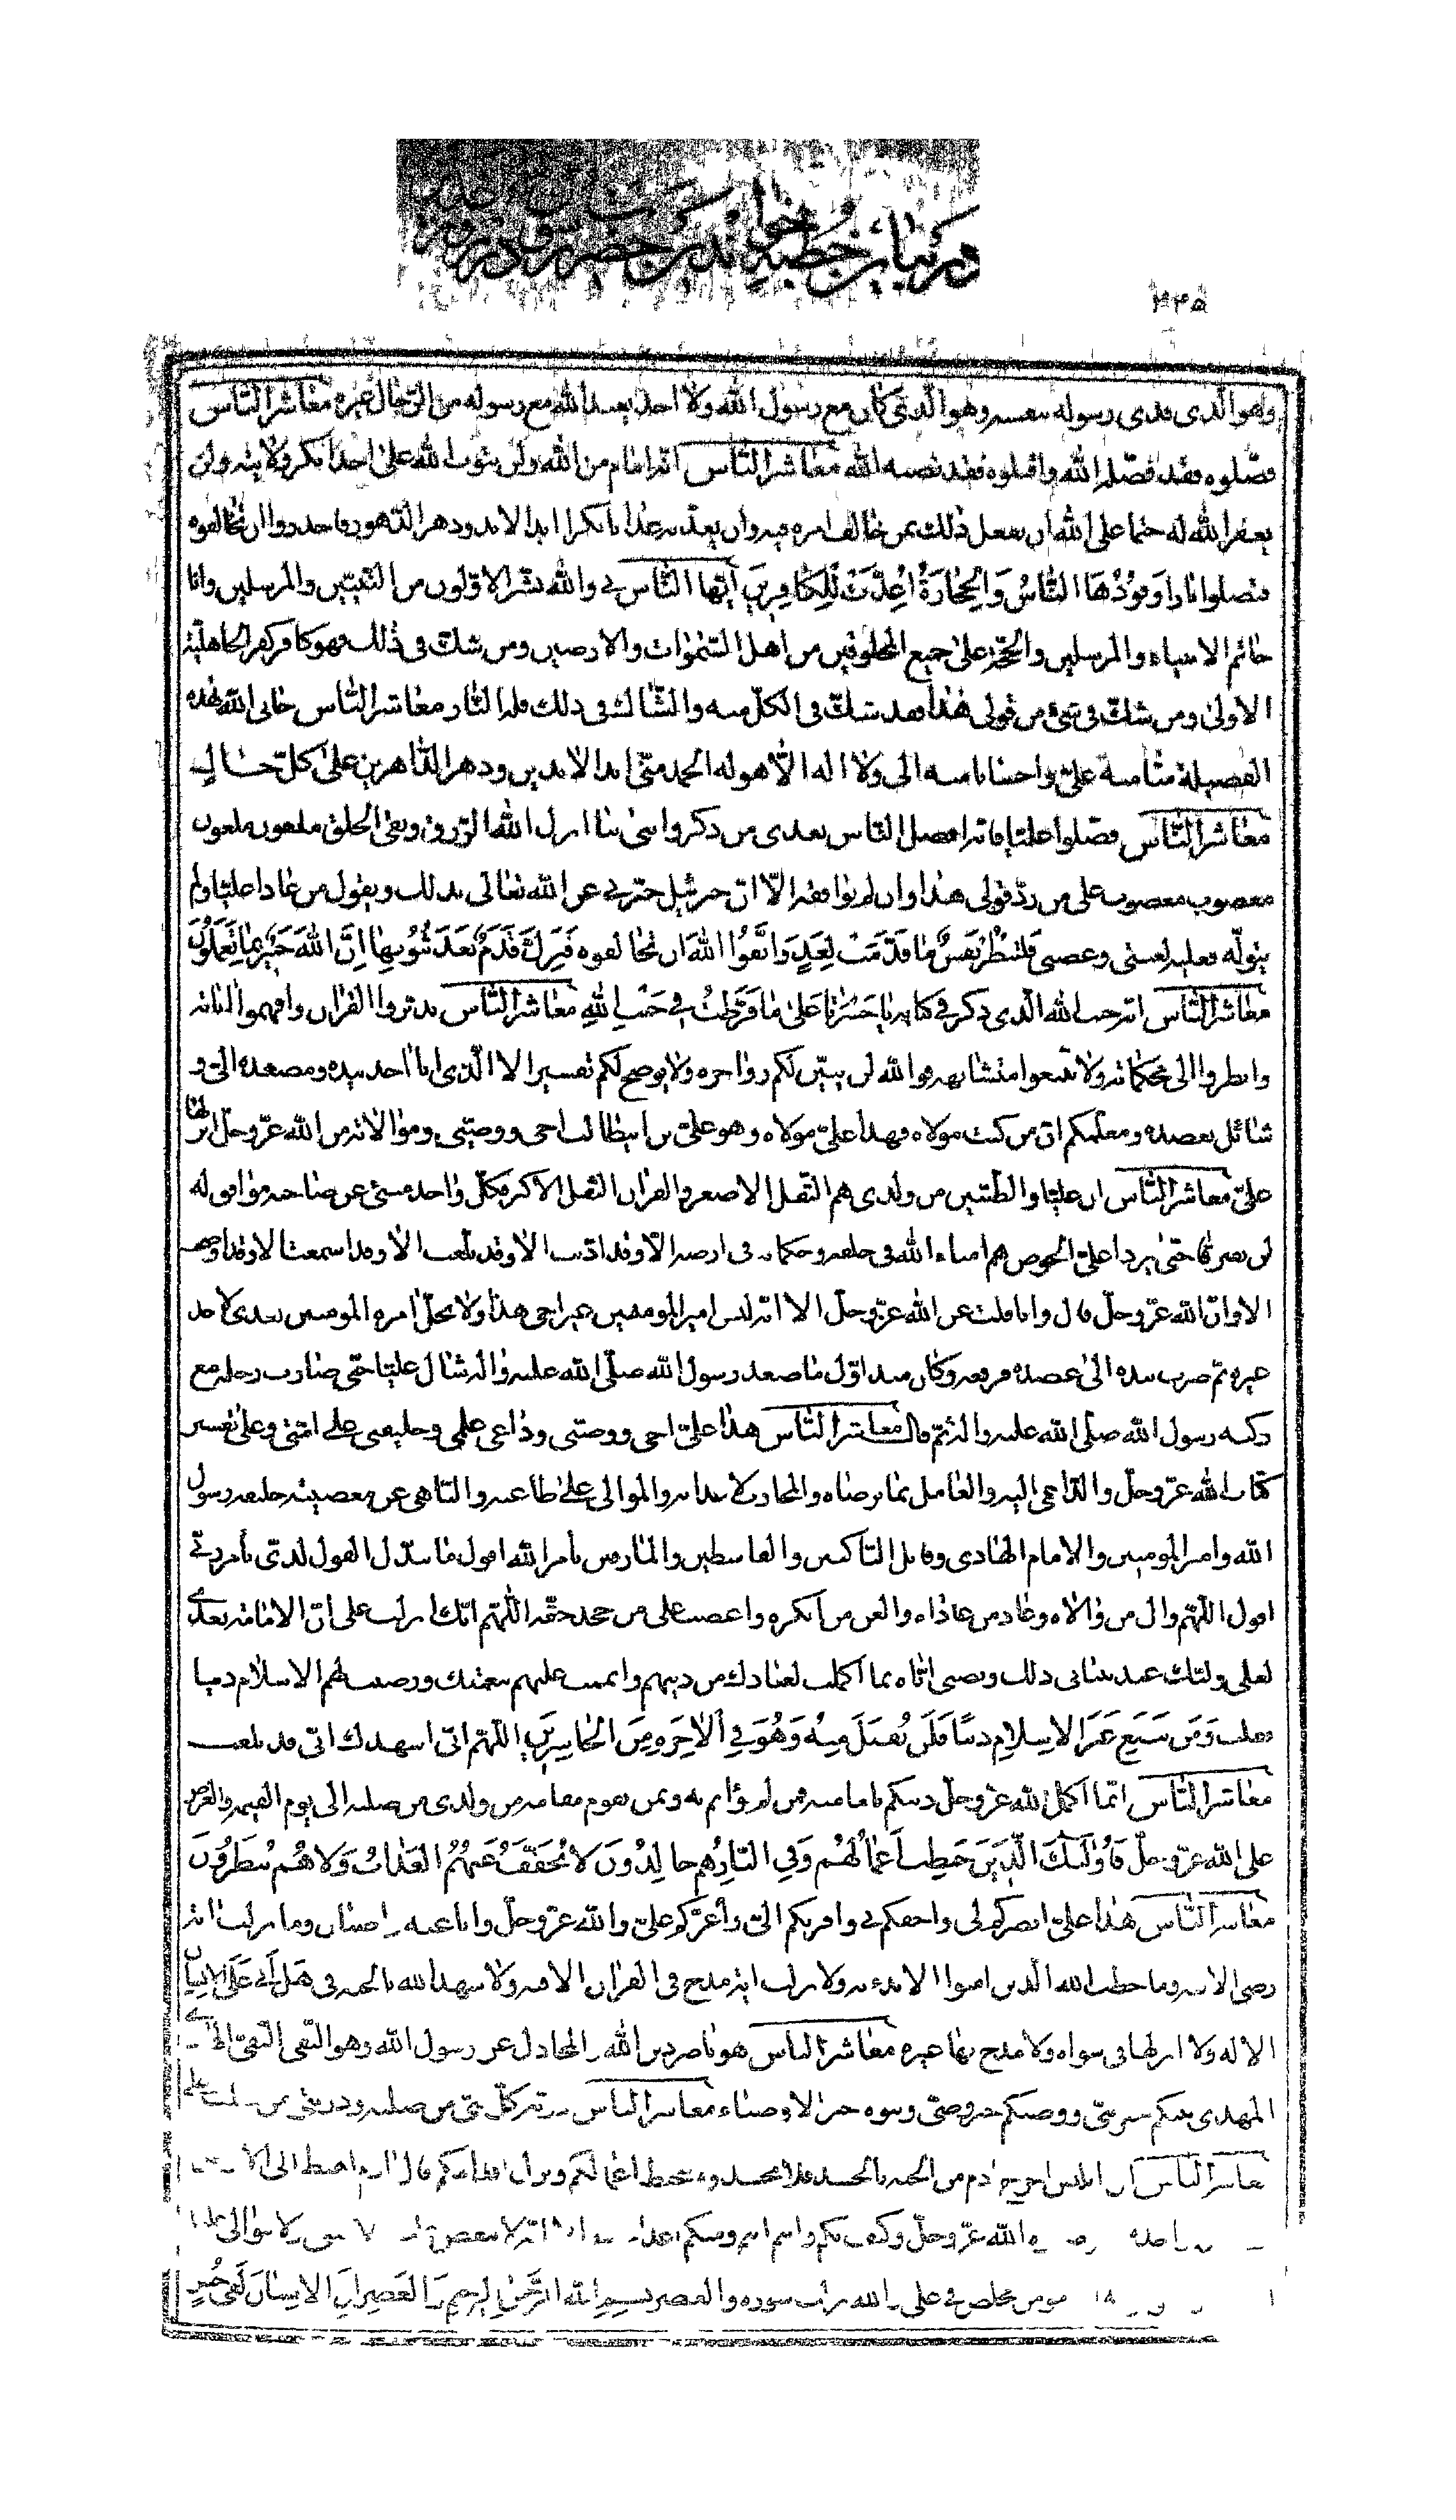 در بیان خطبه خواندن حضرت رسول در روز
۲۴۵
وهو الذی فدی رسوله بنفسه وهو الذی کان مع رسول الله ولا احد یعبد الله مع رسوله من الرجال غیره معاشر الناس
فضلوه فقد فضله الله واقبلوه فقد نصبه الله معاشر الناس انه امام من الله ولن یتوب الله علی احد انکر ولایته ولن
یغفر الله له حتما علی الله ان یفعل ذلک بمن خالف امره فیه وان یعذبه عذابا نکرا ابد الابد ودهر الدهور فاحذروا ان تخالفوه
فتصلوا نارا وَقودُهَا النّاسُ وَالحِجارَةُ اُعِدَّت لِلکافِرینَ ایّها النّاس بی والله بشر الاولون من النبیین والمرسلین وانا
خاتم الانبیاء والمرسلین والحجة علی جمیع المخلوقین من اهل السموات والارضین ومن شک فی ذلک فهو کافر کفر الجاهلیة
الاولی ومن شک فی شیء من قولی هذا فقد شک فی الکل منه والشاک فی ذلک فله النار معاشر الناس حبانی الله بهذه
الفضیلة منا منه علی واحسانا منه الی ولا اله الا هو له الحمد منی ابد الابدین ودهر الداهرین علی کل حال
معاشر الناس فضلوا علیا فانه افضل الناس بعدی من ذکر وانثی بنا انزل الله الرزق وبقی الخلق ملعون ملعون
مغضوب مغضوب علی من رد قولی هذا وان لم یوافقه الا ان جبرئیل خبرنی عن الله تعالی بذلک ویقول من عادا علیا ولم
یتوله فعلیه لعنتی وغضبی فَلتَنظُر نَفسٌ ما قَدَّمَت لِغَدٍ وَاتَّقُوا اللهَ ان تخالفوه فَتَزِلَّ قَدَمٌ بَعدَ ثُبُوتِها اِنَّ اللهَ خَبیرٌ بِما تَعمَلُونَ
معاشر الناس انه جنب الله الذی ذکر فی کتابه یا حَسرَتا عَلی ما فَرَّطتُ فی جَنبِ اللهِ معاشر الناس تدبروا القران وافهموا ایاته
وانظروا الی محکماته ولا تتبعوا متشابهه فوالله لن یبین لکم زواجره ولا یوضح لکم تفسیره الا الذی انا اخذ بیده ومصعده الی و
شائل بعضده ومعلمکم ان من کنت مولاه فهذا علی مولاه وهو علی بن ابیطالب اخی ووصیی وموالاته من الله عز وجل انزلها
علی معاشر الناس ان علیا والطیبین من ولدی هم الثقل الاصغر والقران الثقل الاکبر فکل واحد منبئ عن صاحبه موافق له
لن یفترقا حتی یردا علی الحوض هم امناء الله فی خلقه وحکامه فی ارضه الا وقد ادیت الا وقد بلغت الا وقد اسمعت الا وقد اوضحت
الا وان الله عز وجل قال وانا قلت عن الله عز وجل الا انه لیس امیر المومنین غیر اخی هذا ولا تحل امره المومنین بعدی لاحد
غیره ثم ضرب بیده الی عضده فرفعه وکان منذ اول ما صعد رسول الله صلی الله علیه واله شال علیا حتی صارت رجله مع
رکبه رسول الله صلی الله علیه واله ثم قال معاشر الناس هذا علی اخی ووصیی وواعی علمی وخلیفتی علی امتی وعلی تفسیر
کتاب الله عز وجل والداعی الیه والعامل بما یرضاه والمحارب لاعدائه والموالی علی طاعته والناهی عن معصیته خلیفه رسول
الله وامیر المومنین والامام الهادی وقاتل الناکثین والقاسطین والمارقین بامر الله اقول ما یبدل القول لدی بامر ربی
اقول اللهم وال من والاه وعاد من عاداه والعن من انکره واغضب علی من جحد حقه اللهم انک انزلت علی ان الامامة بعدی
لعلی ولیک عند بیانی ذلک ونصبی ایاه بما اکملت لعبادک من دینهم واتممت علیهم نعمتک ورضیت لهم الاسلام دینا
فقلت وَمَن یَبتَغِ غَیرَ الاِسلامِ دینًا فَلَن یُقبَلَ مِنهُ وَهُوَ فِی الاخِرَهِ مِنَ الخاسِرینَ اللهم انی اشهدک انی قد بلغت
معاشر الناس انما اکمل الله عز وجل دینکم بامامته فمن لم یؤاتم به وبمن یقوم مقامه من ولدی من صلبه الی یوم القیمه والعرض
علی الله عز وجل فَاُولئِکَ الَّذینَ حَبِطَت اَعمالُهُم وَفِی النّارِهُم خالِدُونَ لا یُخَفَّفُ عَنهُمُ العَذابُ وَلا هُم یُنظَرُونَ
معاشر الناس هذا علی انصرکم لی واحقکم بی واقربکم الی واعزکم علی والله عز وجل وانا عنه راضیان وما نزلت ایه
رضی الا فیه وما خاطب الله الذین امنوا الا بدء به ولا نزلت ایة مدح فی القران الا فیه ولا شهد الله بالجنه فی هَل اَتی عَلَی الاِنسانِ
الا له ولا انزلها فی سواه ولا مدح بها غیره معاشر الناس هو ناصر دین الله والمجادل عن رسول الله وهو التقی النقی الهادی
المهدی نبیکم خیر نبی ووصیکم خیر وصی وبنوه خیر الاوصیاء معاشر الناس ذریه کل نبی من صلبه وذریتی من صلب علی
معاشر الناس ان ابلیس اخرج ادم من الجنه بالحسد فلا تحسدوه فتحبط اعمالکم وتزل اقدامکم فان ادم اهبط الی الارض
الله عز وجل وکیف بکم وانتم انتم ومنکم اعداء
مومن مخلص فی علی والله نزلت سوره والعصر بِسمِ اللهِ الرَّحمنِ الرَّحیمِ وَالعَصرِ اِنَّ الاِنسانَ لَفی خُسرٍ